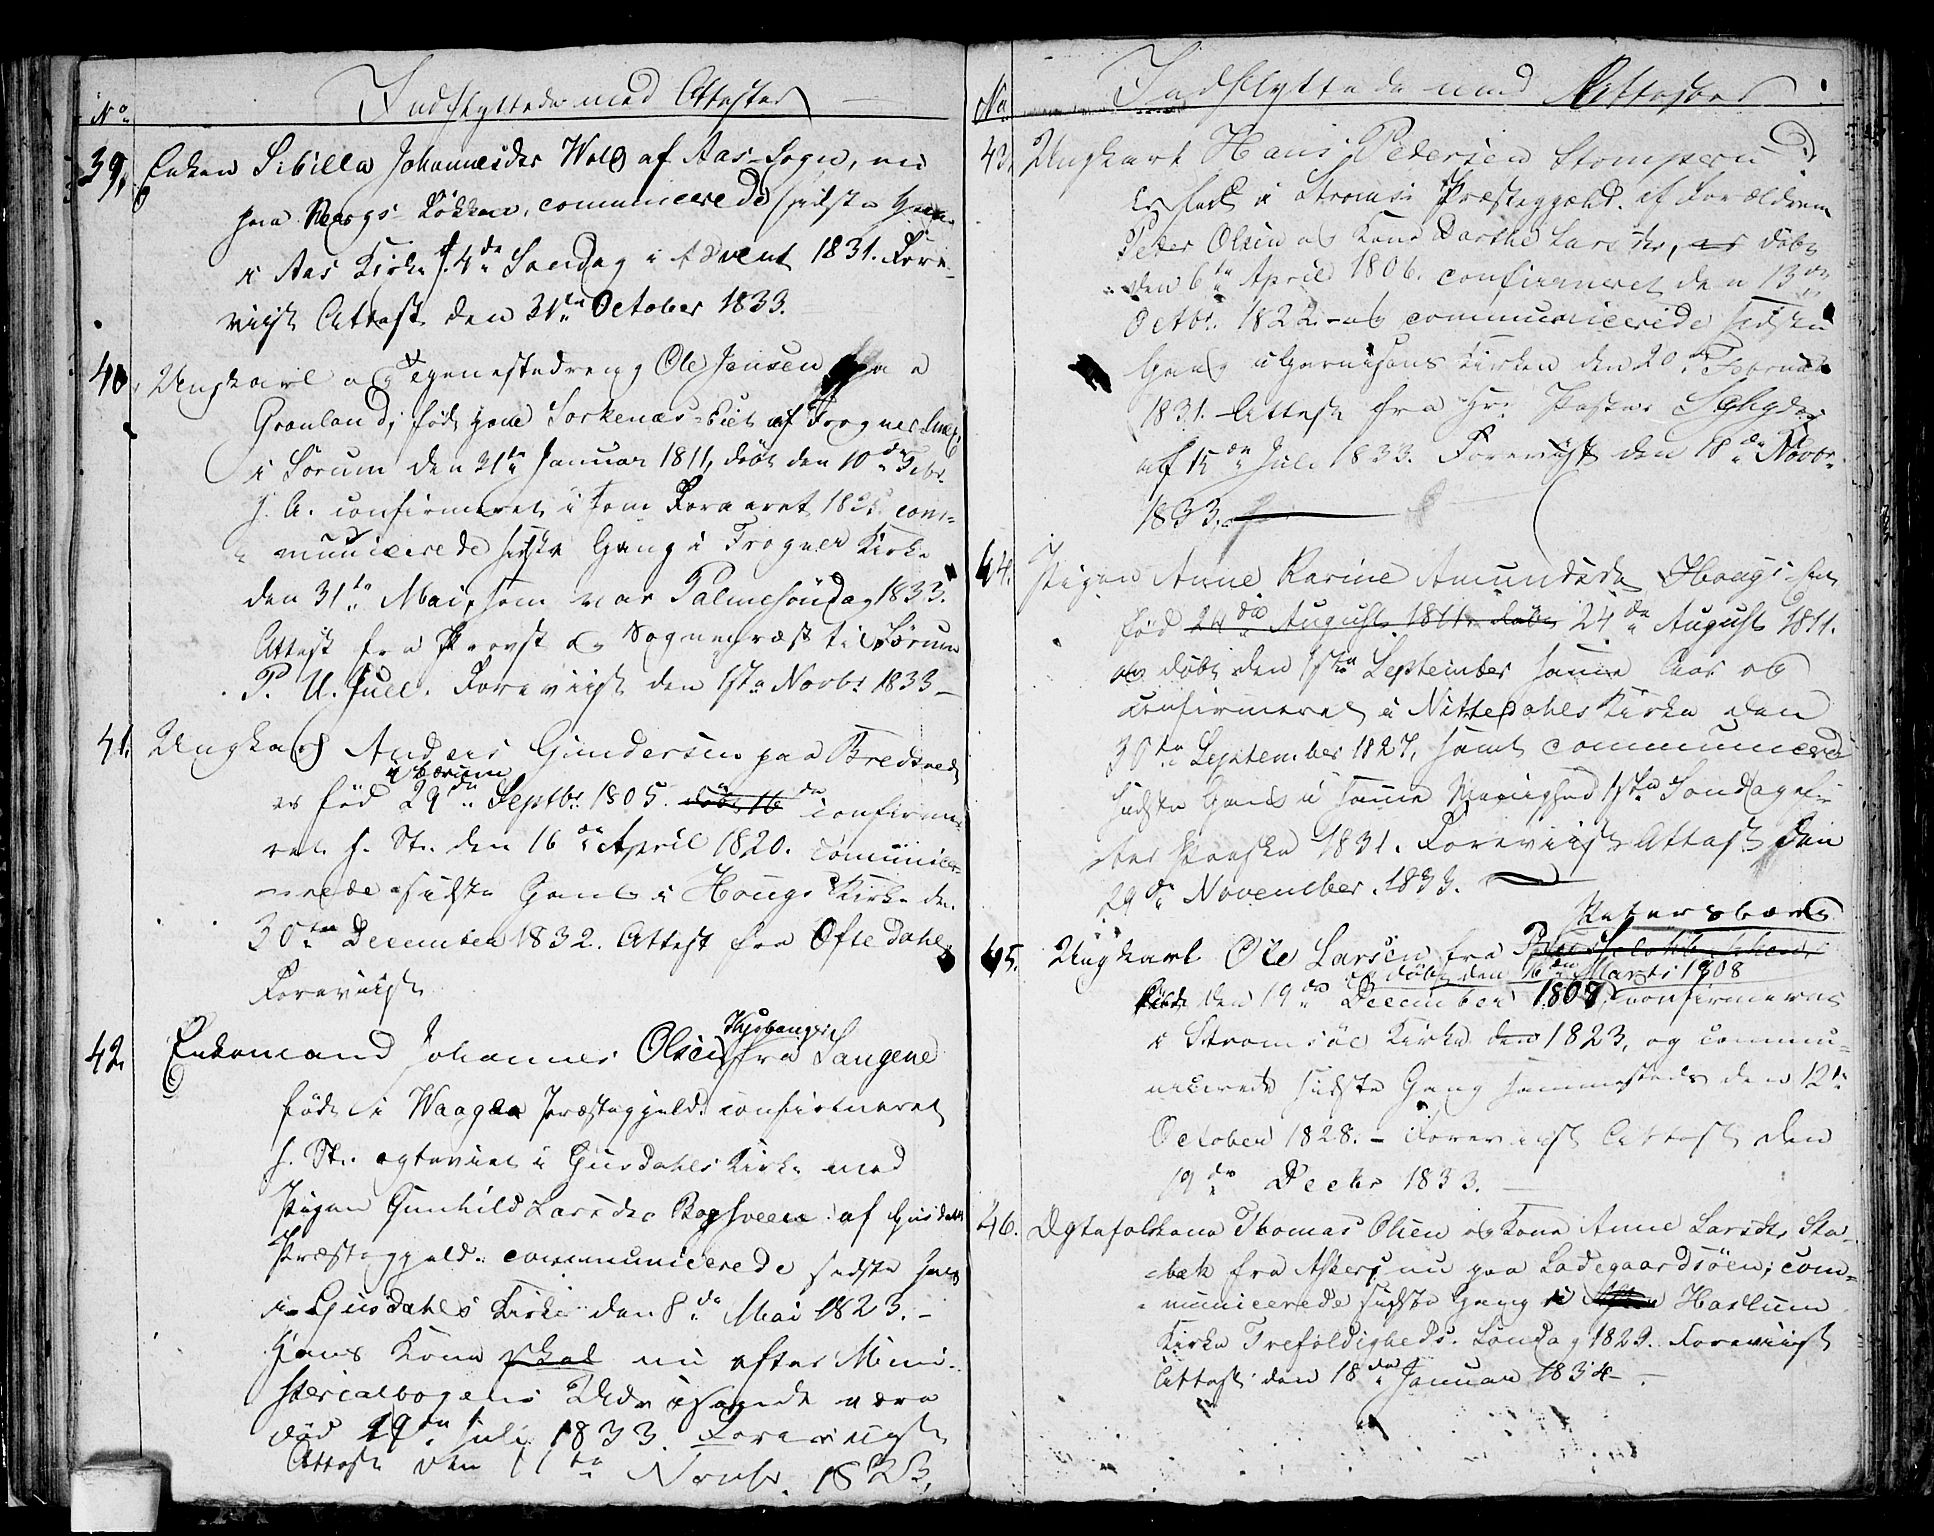 No Indflyttede med Attester
39, Enken Sibilla Johannesdter Wold af Aas-Sogn, nu
paa Løkken, communicerede sidste Gang
i Aas Kirke 4de Søndag i Advent 1831. Fore-
viist Attest den 31te October 1833.
40, Ungkarl og Tjenestedreng Ole Jensen paa
Grønland; født paa Sorkenæs-Eiet af Frogner Anex
i Sørum den 21de Januar 1811, døbt den 10de Febr.
s. A. confirmeret i som Foraaret 182 com-
municerede sidste Gang i Frogner Kirke
den 31te Mai, som var Palmesøndag 1833.
Attest fra Provst og Sognepræst til Sørum
P. U. Juell. Foreviist den 1ste Novbr 1833 —
41. Ungkarl Anders Gundersen paa Bredsvedt
i Bærum
er fød 29de Septbr. 1805. døbt 16 de confirme-
ret s. St. den 16de April 1820. communice-
rede sidste Gang i Hougs Kirke den
30te December 1832. Attest fra Oftedahl
Foreviist
42. Enkemand Johannes Olsen fra Sangene
født i Waage Præstegjeld: confirmeret
s. St. egteviet i Gusdahls Kirke med
Pigen Gunhild Larsdr Bogsveen af Gusdahls
Præstegjeld. communicerede sidste Gang
i Gusdahls Kirke den 8de Mai 1823. —
Hans Kone skal nu efter Mini-
sterialbogens Udvisende være
død 19de Juli 1833. Foreviist
Attest den 11te Novbr. 1833,
No Indflyttede med Attester
43, Ungkarl Hans Petersen Stompern
er født i Strømsø Præstegjeld. af Forældrene
Peter Olsen og Kone Dorthe Larsdter, er døbt
den 6te April 1806. confirmeret den 13de
Octbr. 1822 og communicerede sidste
Gang i Garnisons Kirken den 20de Februar
1831. Attest fra Hr. Pastor
af 15de Juli 1833. Foreviist den 18de Novbr
1833.
44. Pigen Anne Karine Amundsdr Houg
fød 24de August 1811. døbt 24de August 1811.
og døbt den 1ste September samme Aar og
confirmeret i Nittedahls Kirke den
30te September 1827, samt communicerede
sidste Gang i samme Menighed 1ste Søndag ef-
ter Paaske 1831. Foreviist Attest den
29de November. 1833.
Petersborg
45. Ungkarl Ole Larsen fra
og døbt den 16de Marts 1808
født den 19de December 1807, confirmeret
i Strømsøe Kirke den 1823, og commu-
nicerede sidste Gang sammesteds den 12te
October 1828. — Foreviist Attest den
19de Decbr 1833. —
46. Egtefolkene Thomas Olsen og Kone Anne Larsdr Sta-
bæk fra Asker, nu paa Ladegaardsøen; com-
municerede sidste Gang i Haslum
Kirke Trefoldigheds. Søndag 1829. Foreviist
Attest den 18de Januar 1834 —